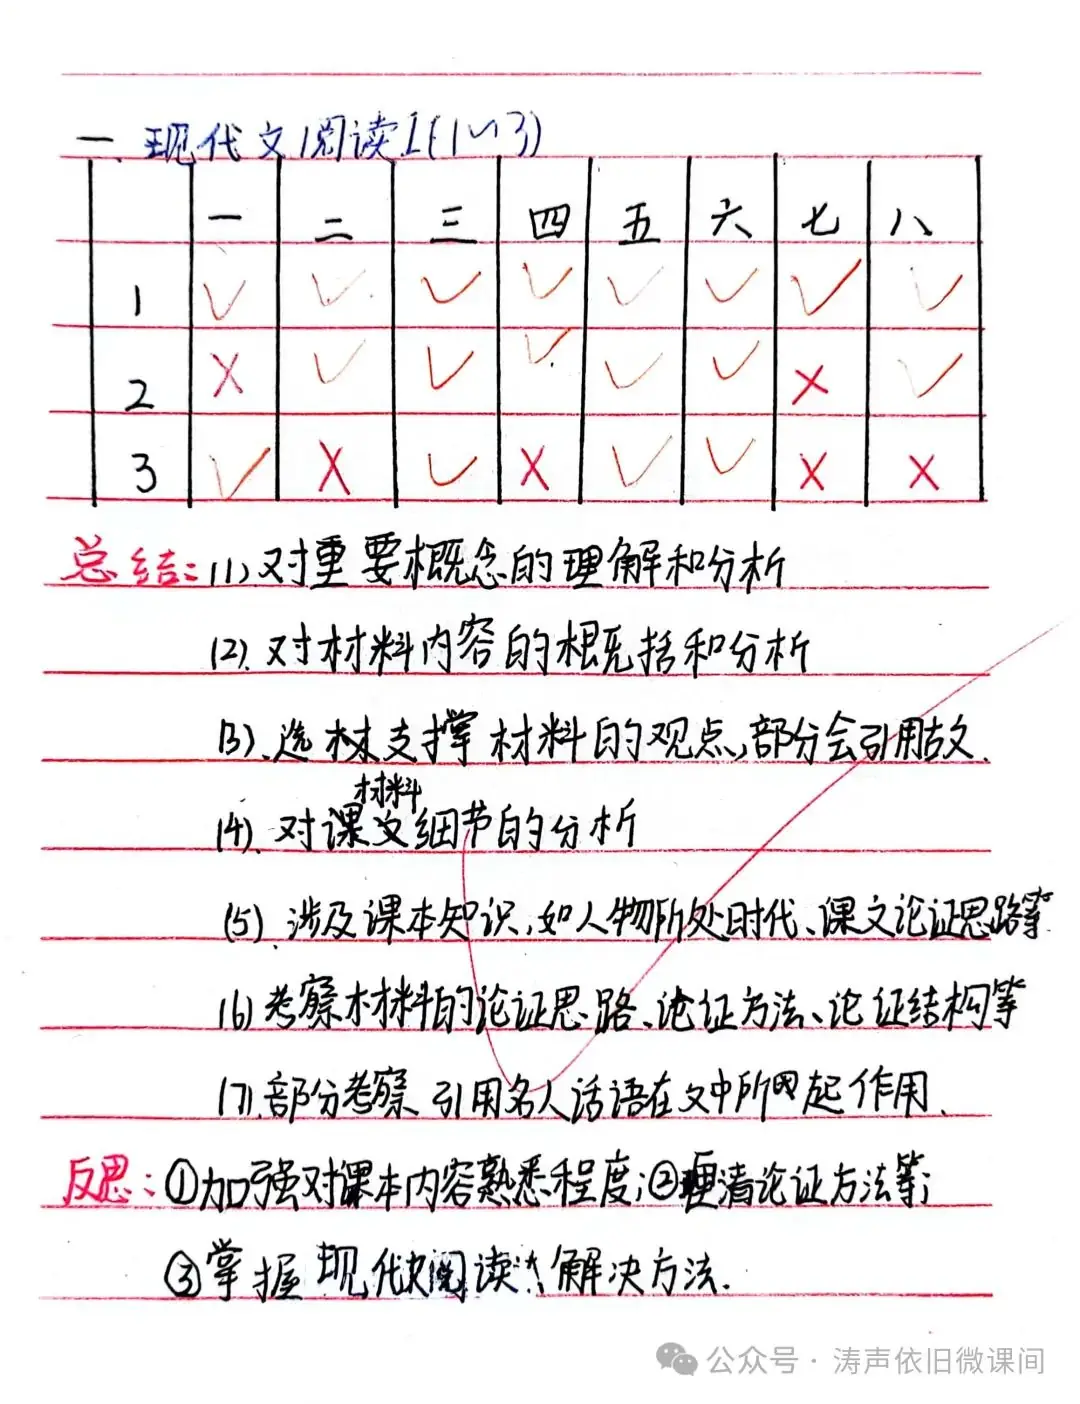 一、现代文阅读I(1~3)
一 二 三 四 五 六 七 八
1 ✓ ✓ ✓ ✓ ✓ ✓ ✓ ✓
2 × ✓ ✓ ✓ ✓ ✓ × ✓
3 ✓ × ✓ × ✓ ✓ × ×
总结:(1)对重要概念的理解和分析
(2).对材料内容的概括和分析
(3)、选材支撑材料的观点,部分会引用古文.
材料
(4).对课文细节的分析
(5).涉及课本知识,如人物所处时代、课文论证思路等
(6)考察材料的论证思路、论证方法、论证结构等
(7).部分考察引用名人话语在文中所起作用.
反思:①加强对课本内容熟悉程度;②理清论证方法等;
③掌握现代文阅读 解决方法.
公众号·涛声依旧微课间